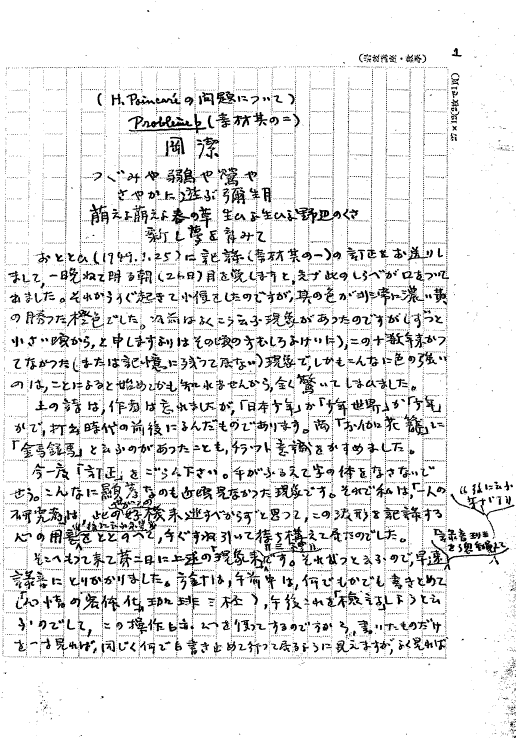 1
(岩波講座・数学)
(H. Poincaréの問題について)
Problème p (素材其の二)
岡 潔
つぐみや 鶸や 鶯や
さやかに遊ぶ彌生月
萌えよ萌えよ春の草 生ひよ生ひよ野辺のくさ
新し夢を育みて
おととひ(1949.3.25)に記録(素材其の一)の訂正をお送りし
まして,一晩ねて明る朝(26日)目を覚しますと,えず此のしらべが口をつい
て出ました。それからすぐ起きて小便をしたのですが,其の色が非常に濃い黄
の勝つた橙色でした。以前はよくこう云ふ現象があつたのですが(しずつと
小さい頃から,と申しますよりはその頃の方もしろよけいに),この十数年来かつ
てなかつた(または記憶に残つて居ない)現象で,しかもこんなに色の強い
のは,ことによると始めてかも知れませんから,全く驚いてしまひました。
上の詩は,作者は忘れましたが,「日本少年」か「少年世界」か「少年」
かで,打出時代の前後によんだものであります。尚「お伽花籠」に
「金馬銀馬」と云ふのがあつたことも,チラツト意識をかすめました。
今一度「訂正」をごらん下さい。手がふるえて字の体をなさないで
せう。こんなに顕著なのも近頃見なかつた現象です。それで私は,「一人の
研究者」は,此の好機未逃すべからずと思つて,この波形を記録する
心の用意をととのへて,今くすね引いて待ち構えて居たのでした。
そこへもつて来て第二日に上述の「現象」です。それがつと云ふので,早速
記録にとりかかりました。方針は,午前中は,何でもかでも書きとめて
午後これを「検討」しようと云
ふのでして,この操作自身二つを使つてするのですから,書いたものだけ
を一寸見れば,同じく何でも書き止めて行つて居るように見えますが,よく見れば